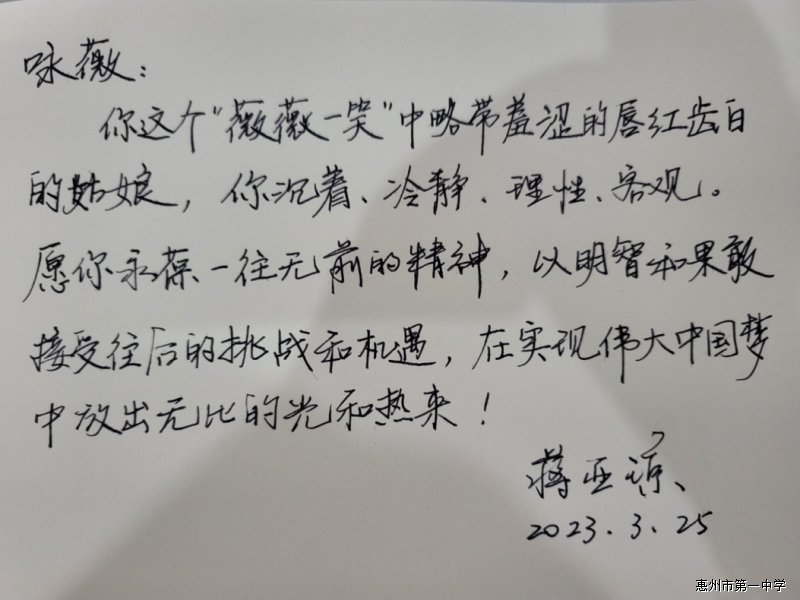 咏薇：
你这个“薇薇一笑”中略带羞涩的唇红齿白
的姑娘，你沉着、冷静、理性、客观。
愿你永葆一往无前的精神，以明智和果敢
接受往后的挑战和机遇，在实现伟大中国梦
中放出无比的光和热来！
蒋亚
2023.3.25
惠州市第一中学